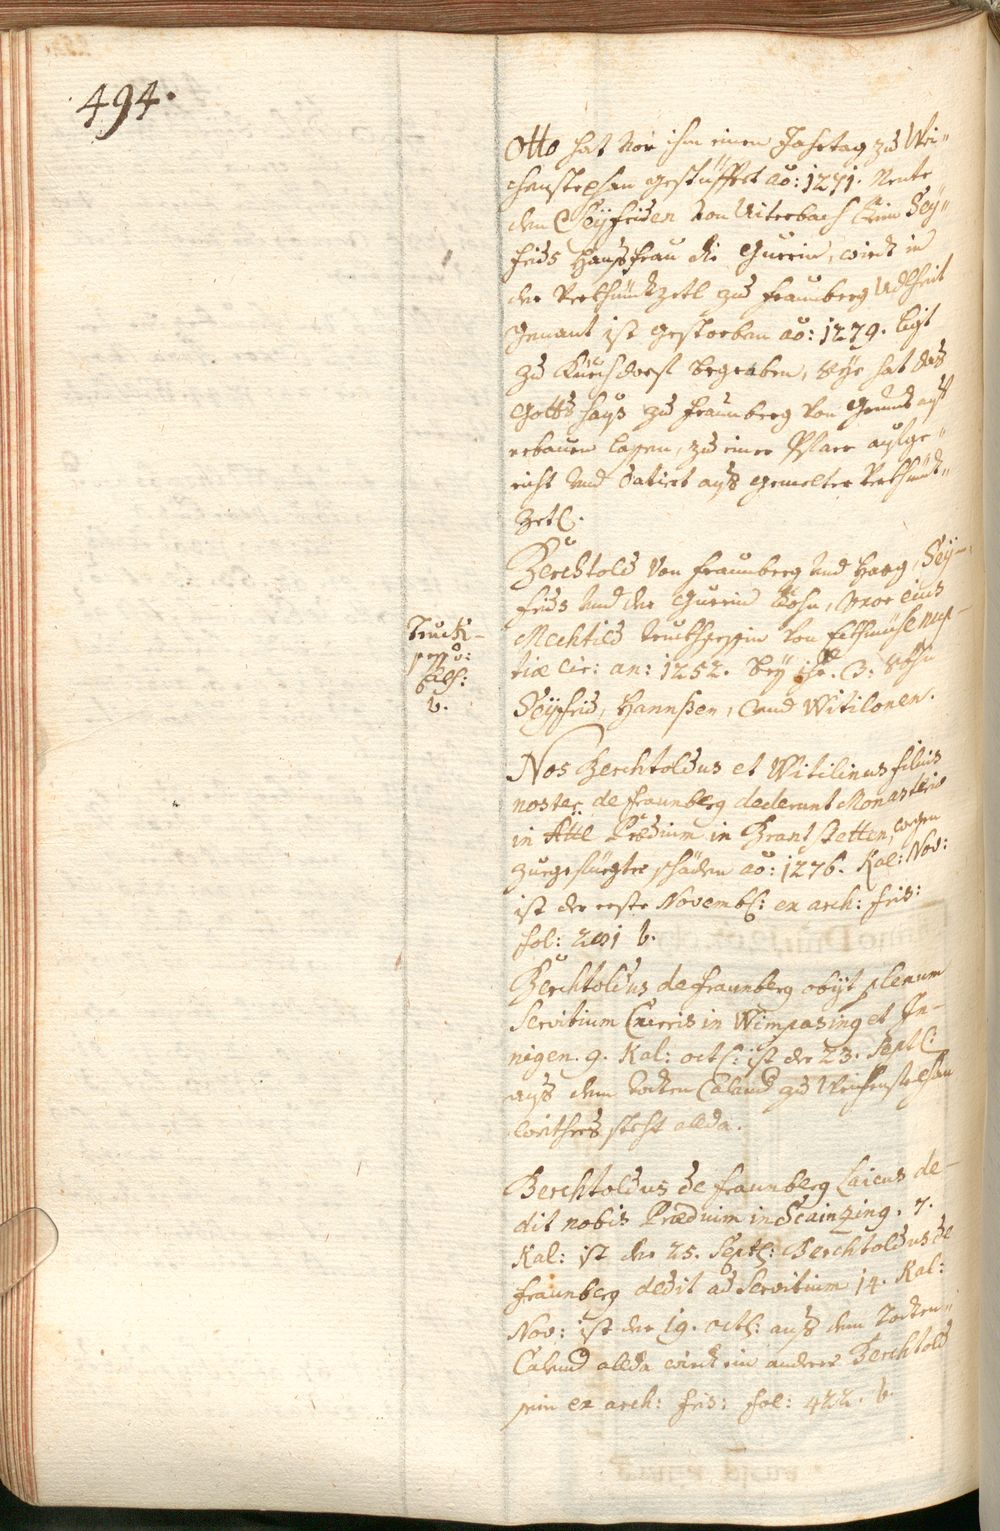 494.
Otto hat vor ihm einen Jahrtag zu Wei-
chenstephan gestüfftet ao: 1271. Nente
den Seÿfriden von Uiterbach sein Seÿ-
frids Haußfrau die Gurrin, wirdt in
der Verkhündtzetl zu Fraunberg Adlheit
genant ist gestorben ao: 1279. ligt
zu Kürchdorf begraben, Sÿe hat das
Gottshauß zu Fraunberg von Grund auf
erbauen lassen, zu einer Pfarr aufge-
richt und datirt auß gemelter Verkhündt-
zetl.
Berchtold von Fraunberg und Haag, Seÿ-
frids und der Gurrin Sohn, Vxor eius
Mechtild Truchsessin von Eckhmühl nup-
tiæ cir: an: 1252. beÿ ihr. 3. Söhn
Seÿfrid, Hannßen, und Witilonen.
Truchs-
sess v:
b.
Nos Berchtoldus et Witilinus filius
noster de Fraunberg dederunt Monasterio
in Ättl Prædium in Brantstetten, wegen
zuegefüegter schäden ao: 1276. Kal: Nov:
ist der erste Novemb: ex arch: fris:
fol: 201 b.
Berchtoldus de Fraunberg obÿt plenum
Servitium Curris in Wimpasing et In-
nigen. 9. Kal: oct: ist der 23. Sept:
auß dem todten Calend zu Weichenstephan
weithers steht allda.
Berchtoldus de Fraunberg Laicus de-
dit nobis Prædium in Scainzing. 7.
Kal: ist der 25. Sept: Berchtoldus de
Fraunberg dedit ad Servitium 14. Kal:
Nov: ist der 19. oct: auß dem Todten-
Calend allda wirdt ein anderer Berchtold
sein ex arch: fris: fol: 422. b